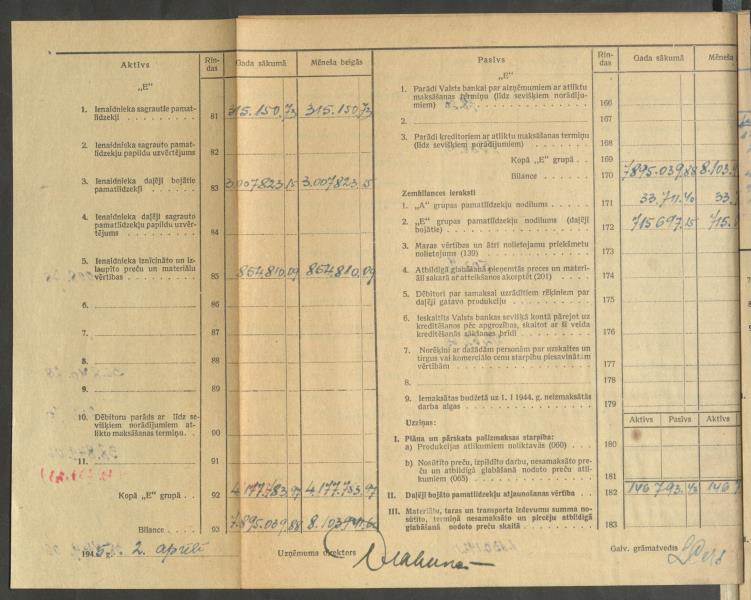 Aktīvs
Rindas
Gada sākumā
Mēneša beigās
„E"
1. Ienaidnieka sagrautie pamat-
līdzekļi
81
315.150,73
315.150,73
2. Ienaidnieka sagrauto pamat-
līdzekļu papildu uzvērtējums
82
3. Ienaidnieka daļēji bojātie
pamatlīdzekļi
83
3.007823.15
3.007823.15
4. Ienaidnieka daļēji sagrauto
pamatlīdzekļu papildu uzvēr-
tējums
84
5. Ienaidnieka iznīcināto un iz-
laupīto preču un materiālu
vērtības
85
864.810,09
864.810,09
6.
86
7.
87
8.
88
9.
89
10. Debitoru parāds ar līdz se-
višķiem norādījumiem at-
likto maksāšanas termiņu.
90
11.
91
Kopā „E" grupā
92
4.177.783.97
4.177.783.97
Bilance
93
7.895.039.88
1945 g. 2. aprīlī
Uzņēmuma direktors
Pasīvs
Rindas
Gada sākumā
Mēneša
„E"
1. Parādi Valsts bankai par aizņēmumiem ar atliktu
maksāšanas termiņu (līdz sevišķiem norādīju-
miem)
166
2.
167
3. Parādi kreditoriem ar atliktu maksāšanas termiņu
(līdz sevišķiem norādījumiem)
168
Kopā „E" grupā
169
Bilance
170
7895.039.88
8.103.9
Zembilances ieraksti
1. „A" grupas pamatlīdzekļu nodilums
171
33.711.40
33.7
2. „E" grupas pamatlīdzekļu nodilums (daļēji
bojātie)
172
715697.15
715.
3. Mazas vērtības un ātri nolietojamu priekšmetu
nolietojums (139)
173
4. Atbildīgā glabāšanā pieņemtās preces un materi-
āli sakarā ar atteikšanos akceptēt (201)
174
5. Debitori par samaksai uzrādītiem rēķiniem par
daļēji gatavo produkciju
175
6. Ieskaitīts Valsts bankas sevišķā kontā pārejot uz
kreditēšanos pēc apgrozības, skaitot ar šī veida
kreditēšanās sākšanas brīdi
176
7. Norēķini ar dažādām personām par uzskaites un
tirgus vai komerciālo cenu starpību piesavinātām
vērtībām
177
8.
178
9. Iemaksātas budžetā uz 1. I 1944. g. neizmaksātās
darba algas
179
Uzziņas:
Aktīvs
Pasīvs
Aktīvs
I. Plāna un pārskata pašizmaksas starpība:
a) Produkcijas atlikumiem noliktavās (060)
180
b) Nosūtīto preču, izpildīto darbu, nesamaksāto pre-
ču un atbildīgā glabāšanā nodoto preču atli-
kumiem (065)
181
II. Daļēji bojāto pamatlīdzekļu atjaunošanas vērtība
182
146793.40
146
III. Materiālu, taras un transporta izdevumu summa no-
sūtīto, termiņā nesamaksāto un pircēju atbildīgā
glabāšanā nodoto preču skaitā
183
Galv. grāmatvedis